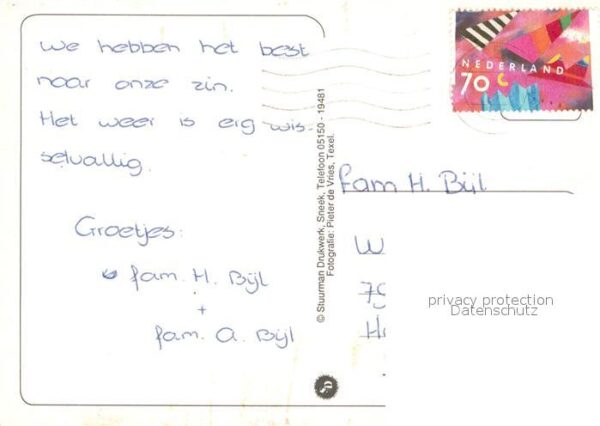 We hebben het best
naar onze zin.
Het weer is erg wis-
selvallig.
Groetjes:
fam. H. Bijl
+
fam. A. Bijl
© Stuurman Drukwerk, Sneek, Telefoon 05150 - 19481
Fotografie: Pieter de Vries, Texel.
NEDERLAND
70 c
fam H. Bijl
W
79
H
privacy protection
Datenschutz